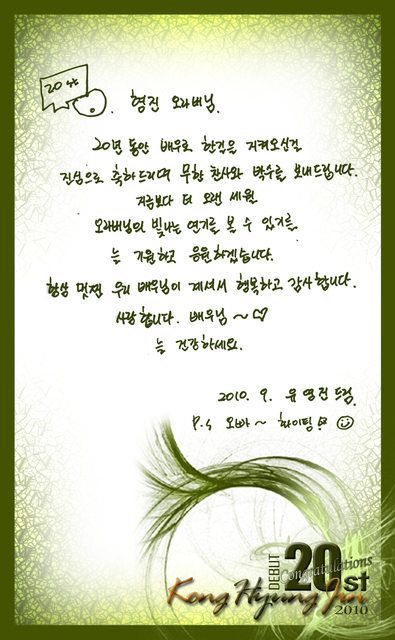 20th
형진 오라버님.
20년 동안 배우로 한길을 지켜오심걸
진심으로 축하드리며 무한 찬사와 박수를 보내드립니다.
지금보다 더 오랜 세월
오라버님의 빛나는 연기를 볼 수 있기를
늘 기원하고 응원하겠습니다.
항상 멋찐 우리 배우님이 계셔서 행복하고 감사합니다.
사랑합니다. 배우님~♡
늘 건강하세요.
2010. 9. 유영진 드림.
P.S 오빠~ 화이팅
DEBUT
20st
Congratulations
Kong Hyung Jin
2010